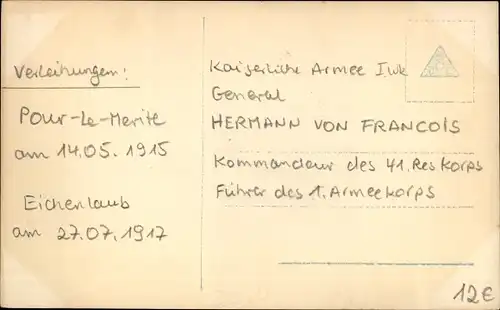 Verleihungen:
Pour-Le-Merite
am 14.05.1915
Eichenlaub
am 27.07.1917
Kaiserliche Armee IWK
General
HERMANN VON FRANCOIS
Kommandeur des 41. Res Korps
Führer des 1. Armeekorps
12€